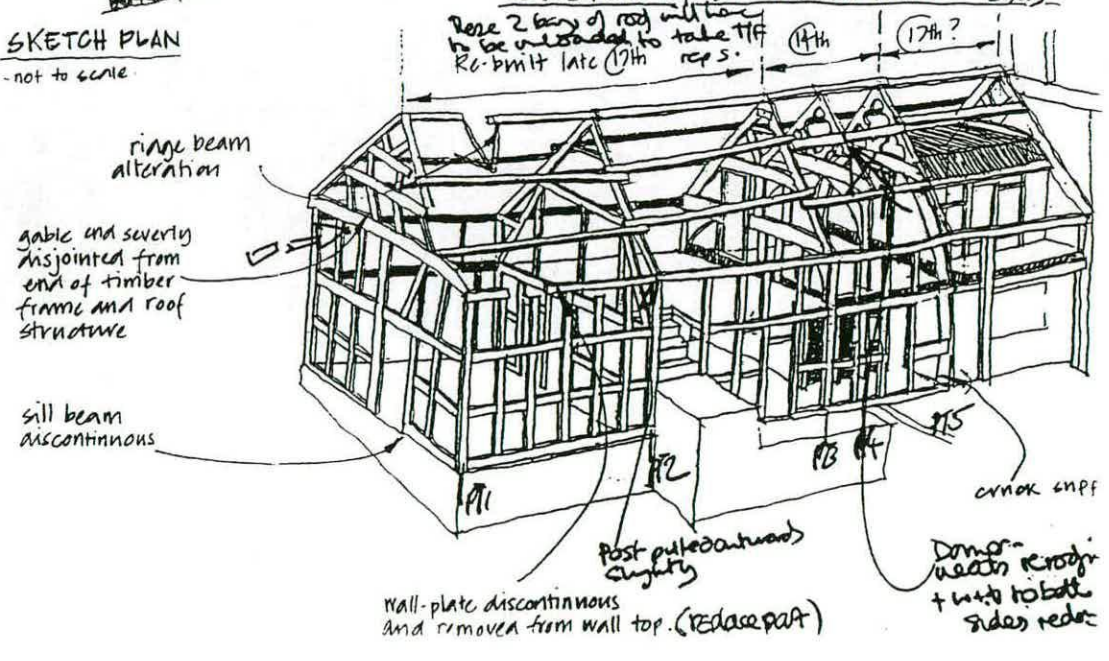 SKETCH PLAN
- not to scale.
These 2 bays of roof will have
to be unloaded to take T/F
Re-built late 17th reps.
14th
17th?
ridge beam
alteration
gable end severly
disjointed from
end of timber
frame and roof
structure
sill beam
discontinuous
PT1
PT2
PT3
PT4
PT5
Post pulled outwards
slightly
wall-plate discontinuous
and removed from wall top. (REPLACE PART)
needs
to both
sides